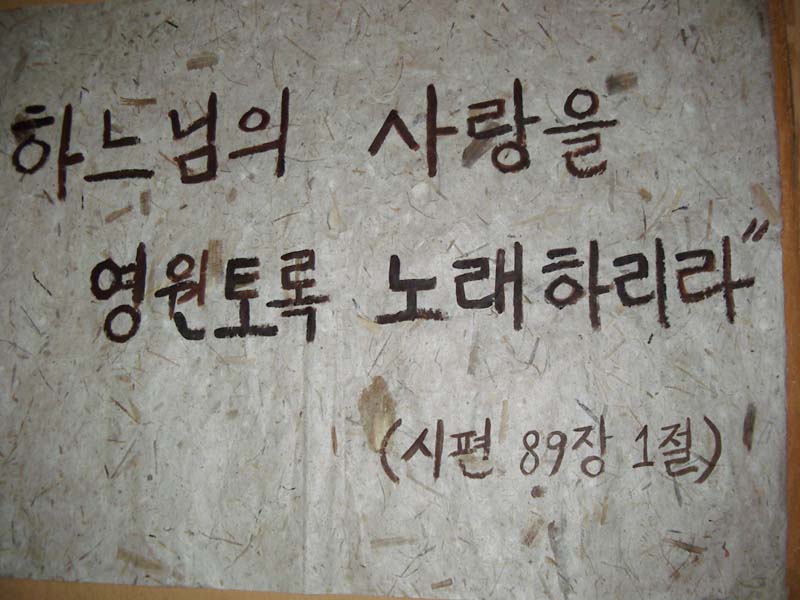 하느님의 사랑을
영원토록 노래하리라"
(시편 89장 1절)